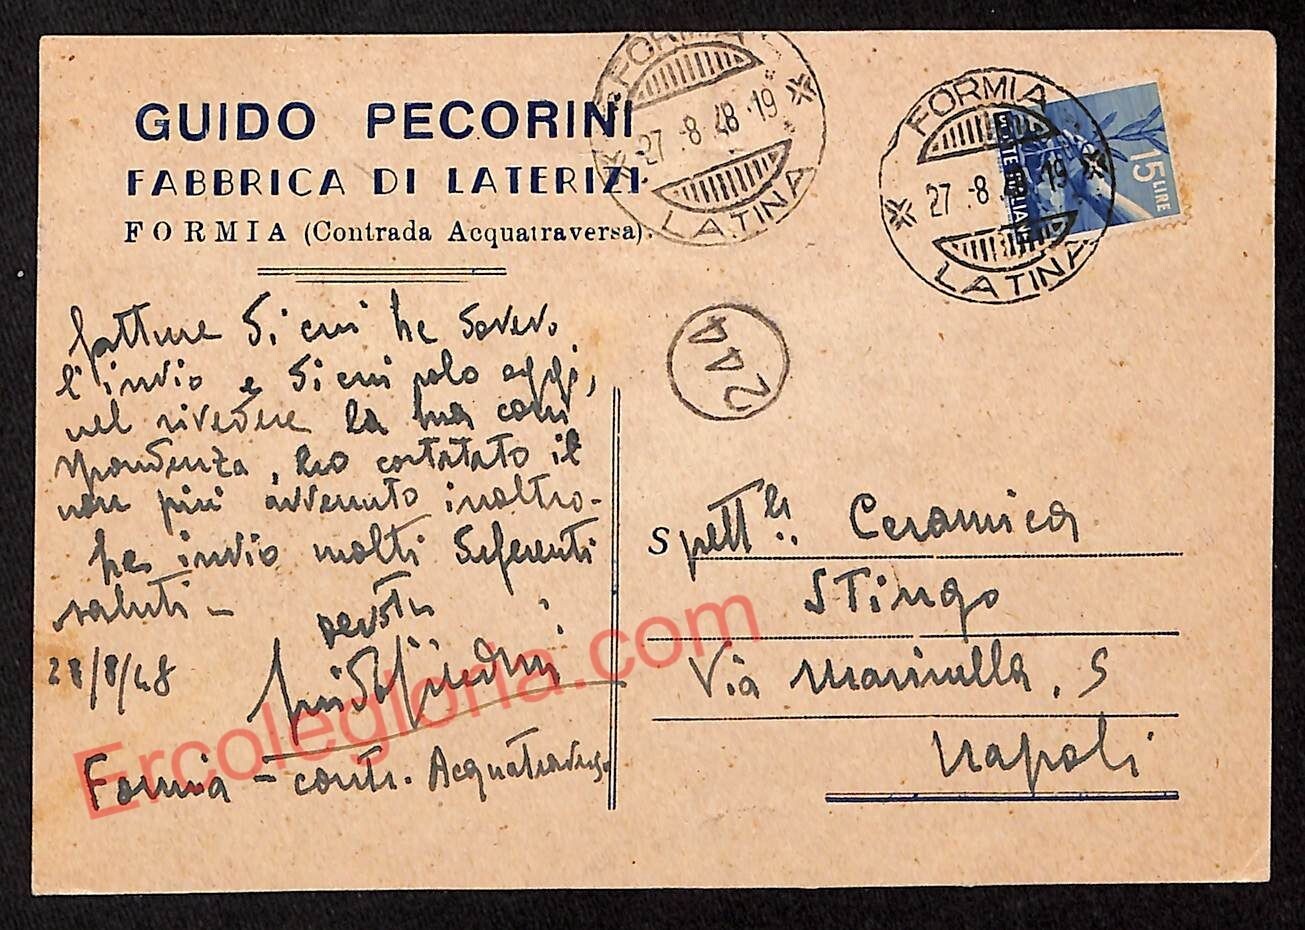 GUIDO PECORINI
FABBRICA DI LATERIZI
FORMIA (Contrada Acquatraversa).
FORMIA
27.-8.48.-19
LATINA
FORMIA
27.-8.48.-19
LATINA
15 LIRE
POSTE ITALIANE
244
fatture di cui ho
l'invio e di cui solo oggi,
nel rivedere la sua corri
spondenza, ho il
non più avvenuto inoltro-
invio molti deferenti
saluti -
28/8/48
Formia - contr. Acquatravers.
Spett.le Ceramica
Stingo
Via Marinella, 5
Napoli
Ercolegloria.com